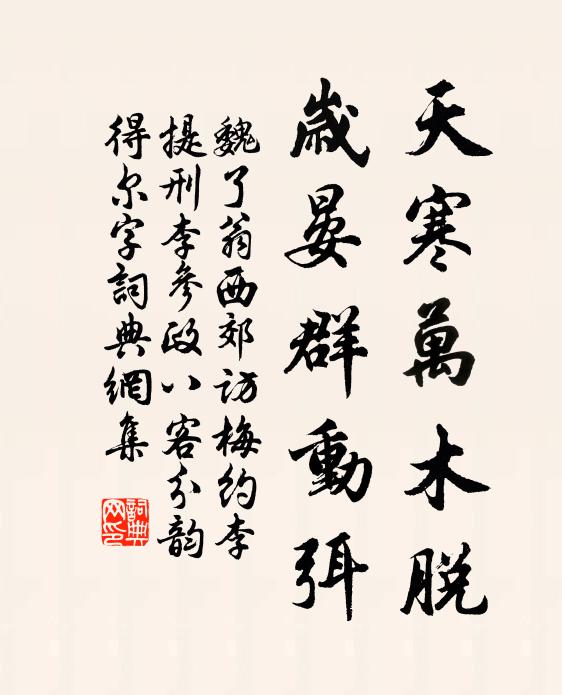 天寒萬木脫
歲晏群動弭
魏了翁西郊访梅约李
提刑李參政八客分韵
得尔字詞典網集
詞典
网印